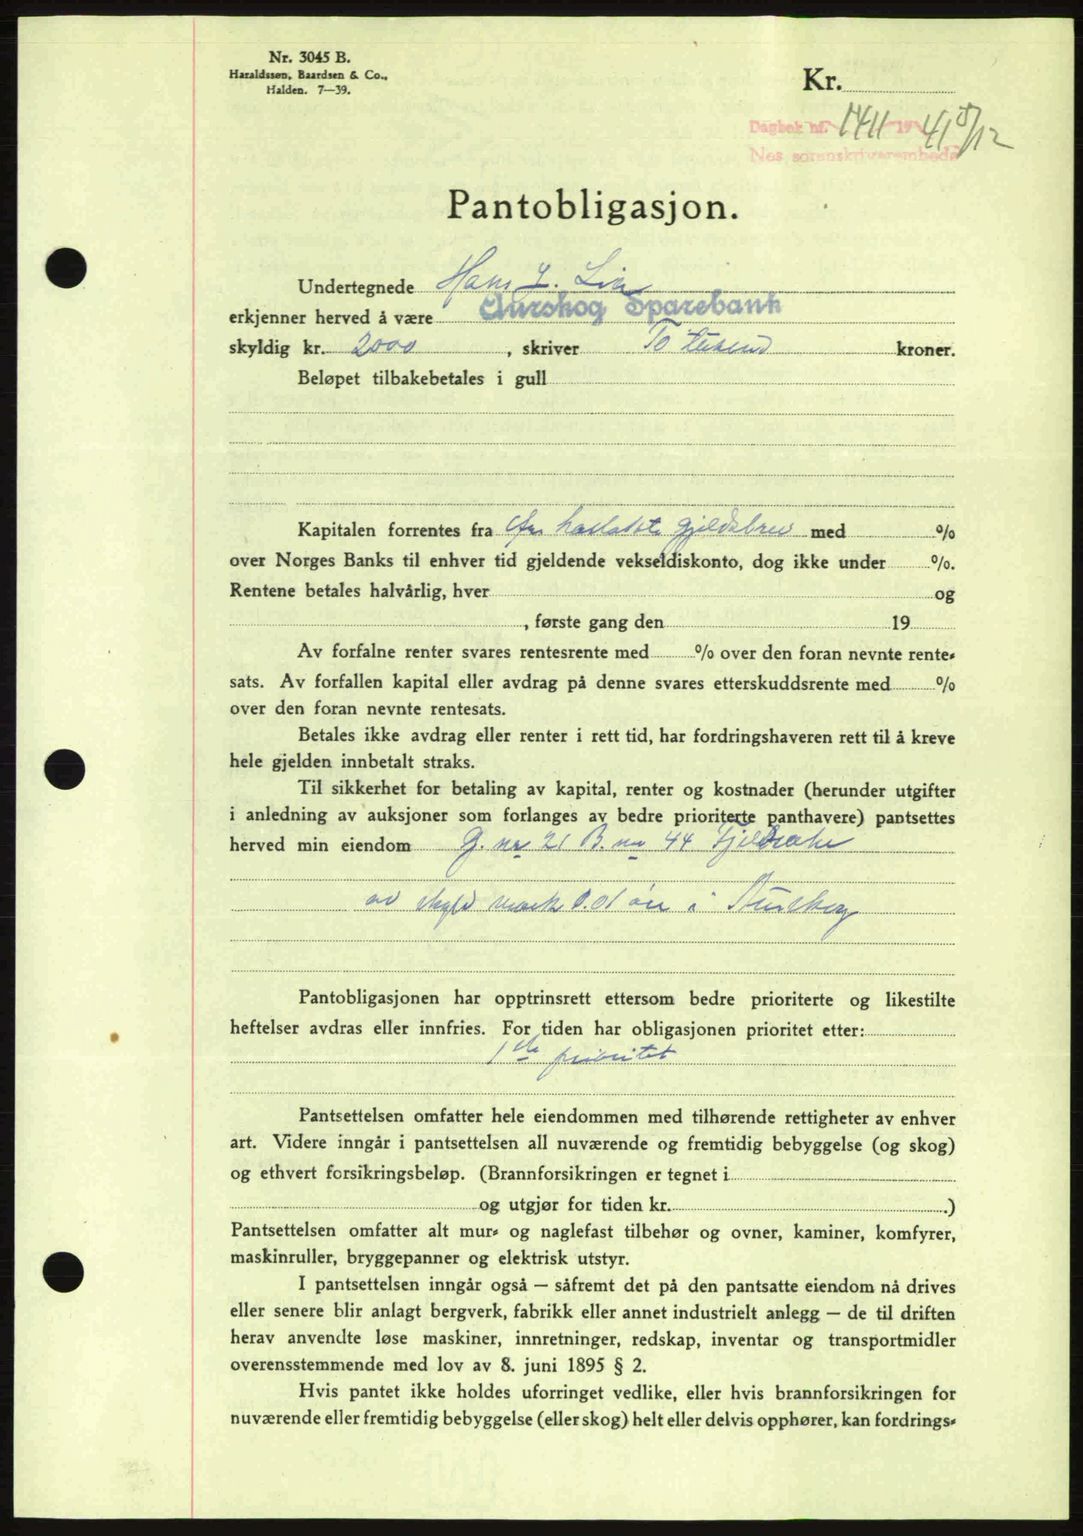 Nr. 3045 B.
Haraldssøn, Baardsen & Co.,
Halden. 7—39.
Kr.
Dagbok nr. 1411 19 41 8/12
Nes sorenskriverembede
Pantobligasjon.
Undertegnede Hans L. Lie
erkjenner herved å være Aurskog Sparebank
skyldig kr. 2000, skriver To tusend kroner.
Beløpet tilbakebetales i gull
Kapitalen forrentes fra gjeldsbrev med %
over Norges Banks til enhver tid gjeldende vekseldiskonto, dog ikke under %.
Rentene betales halvårlig, hver og
, første gang den 19
Av forfalne renter svares rentesrente med % over den foran nevnte rente-
sats. Av forfallen kapital eller avdrag på denne svares etterskuddsrente med %
over den foran nevnte rentesats.
Betales ikke avdrag eller renter i rett tid, har fordringshaveren rett til å kreve
hele gjelden innbetalt straks.
Til sikkerhet for betaling av kapital, renter og kostnader (herunder utgifter
i anledning av auksjoner som forlanges av bedre prioriterte panthavere) pantsettes
herved min eiendom G. nr 21 B. nr 44
av skyld mark 0.01 øre i
Pantobligasjonen har opptrinsrett ettersom bedre prioriterte og likestilte
heftelser avdras eller innfries. For tiden har obligasjonen prioritet etter:
1ste prioritet
Pantsettelsen omfatter hele eiendommen med tilhørende rettigheter av enhver
art. Videre inngår i pantsettelsen all nuværende og fremtidig bebyggelse (og skog)
og ethvert forsikringsbeløp. (Brannforsikringen er tegnet i
og utgjør for tiden kr. .)
Pantsettelsen omfatter alt mur- og naglefast tilbehør og ovner, kaminer, komfyrer,
maskinruller, bryggepanner og elektrisk utstyr.
I pantsettelsen inngår også — såfremt det på den pantsatte eiendom nå drives
eller senere blir anlagt bergverk, fabrikk eller annet industrielt anlegg — de til driften
herav anvendte løse maskiner, innretninger, redskap, inventar og transportmidler
overensstemmende med lov av 8. juni 1895 § 2.
Hvis pantet ikke holdes uforringet vedlike, eller hvis brannforsikringen for
nuværende eller fremtidig bebyggelse (eller skog) helt eller delvis opphører, kan fordrings-